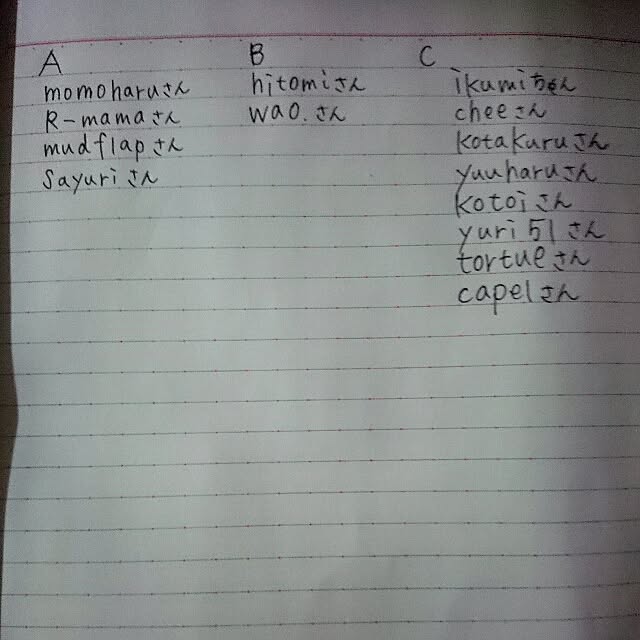 A
momoharuさん
R-mamaさん
mudflapさん
sayuriさん
B
hitomiさん
wao.さん
C
ikumiちゃん
cheeさん
kotakuruさん
yuuharuさん
kotoiさん
yuri51さん
tortueさん
capelさん